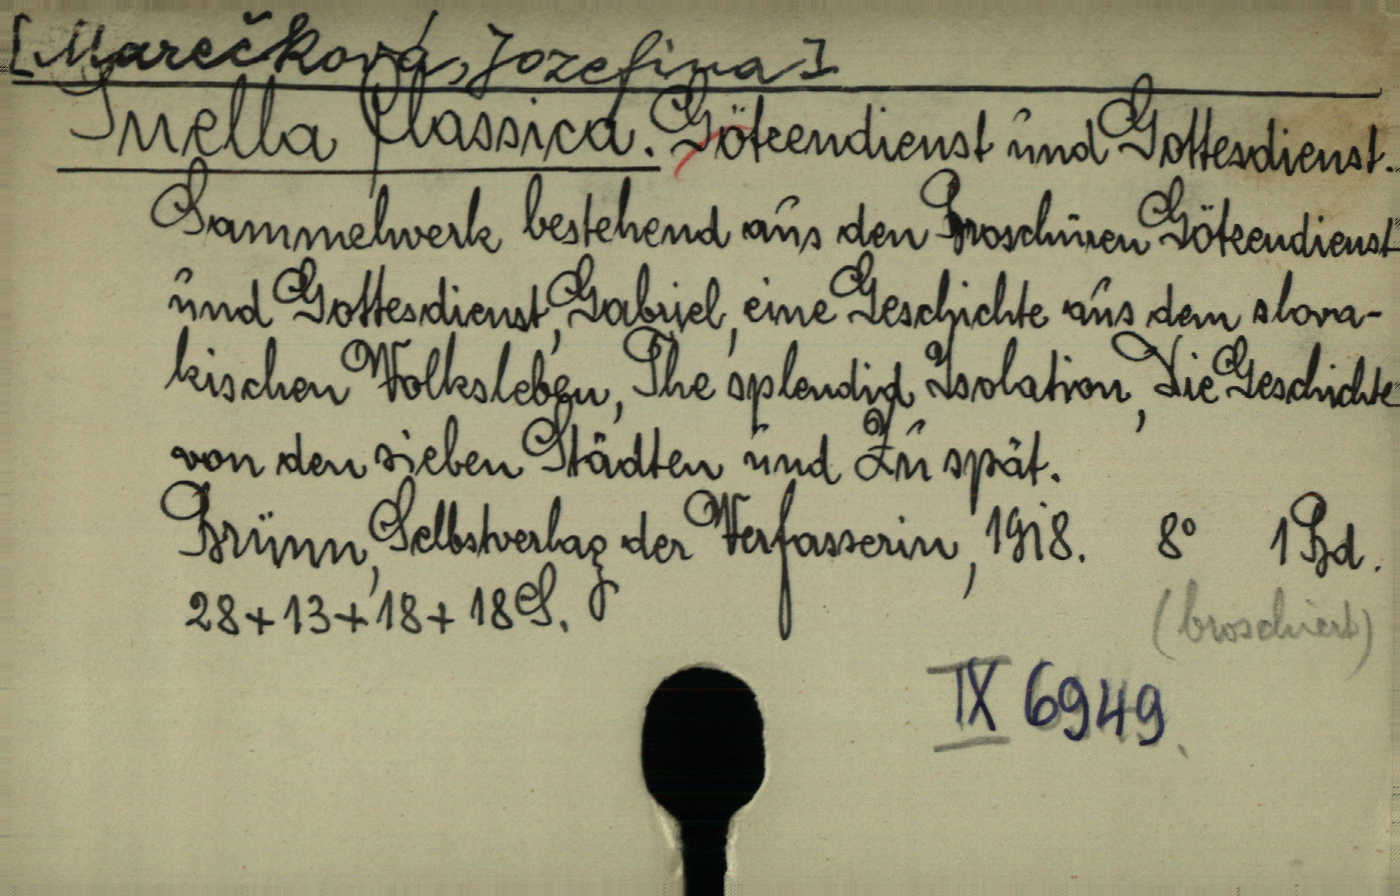 [Marečková, Jozefina]
Puella Classica. Götzendienst und Gottesdienst.
Sammelwerk bestehend aus den Broschüren Götzendienst
und Gottesdienst, Gabriel, eine Geschichte aus dem slova-
kischen Volksleben, The splendid Isolation, Die Geschichte
von den sieben Städten und Zu spät.
Brünn, Selbstverlag der Verfasserin, 1918. 8° 1 Bd.
28+13+18+18 S.
(broschiert)
IX 6949